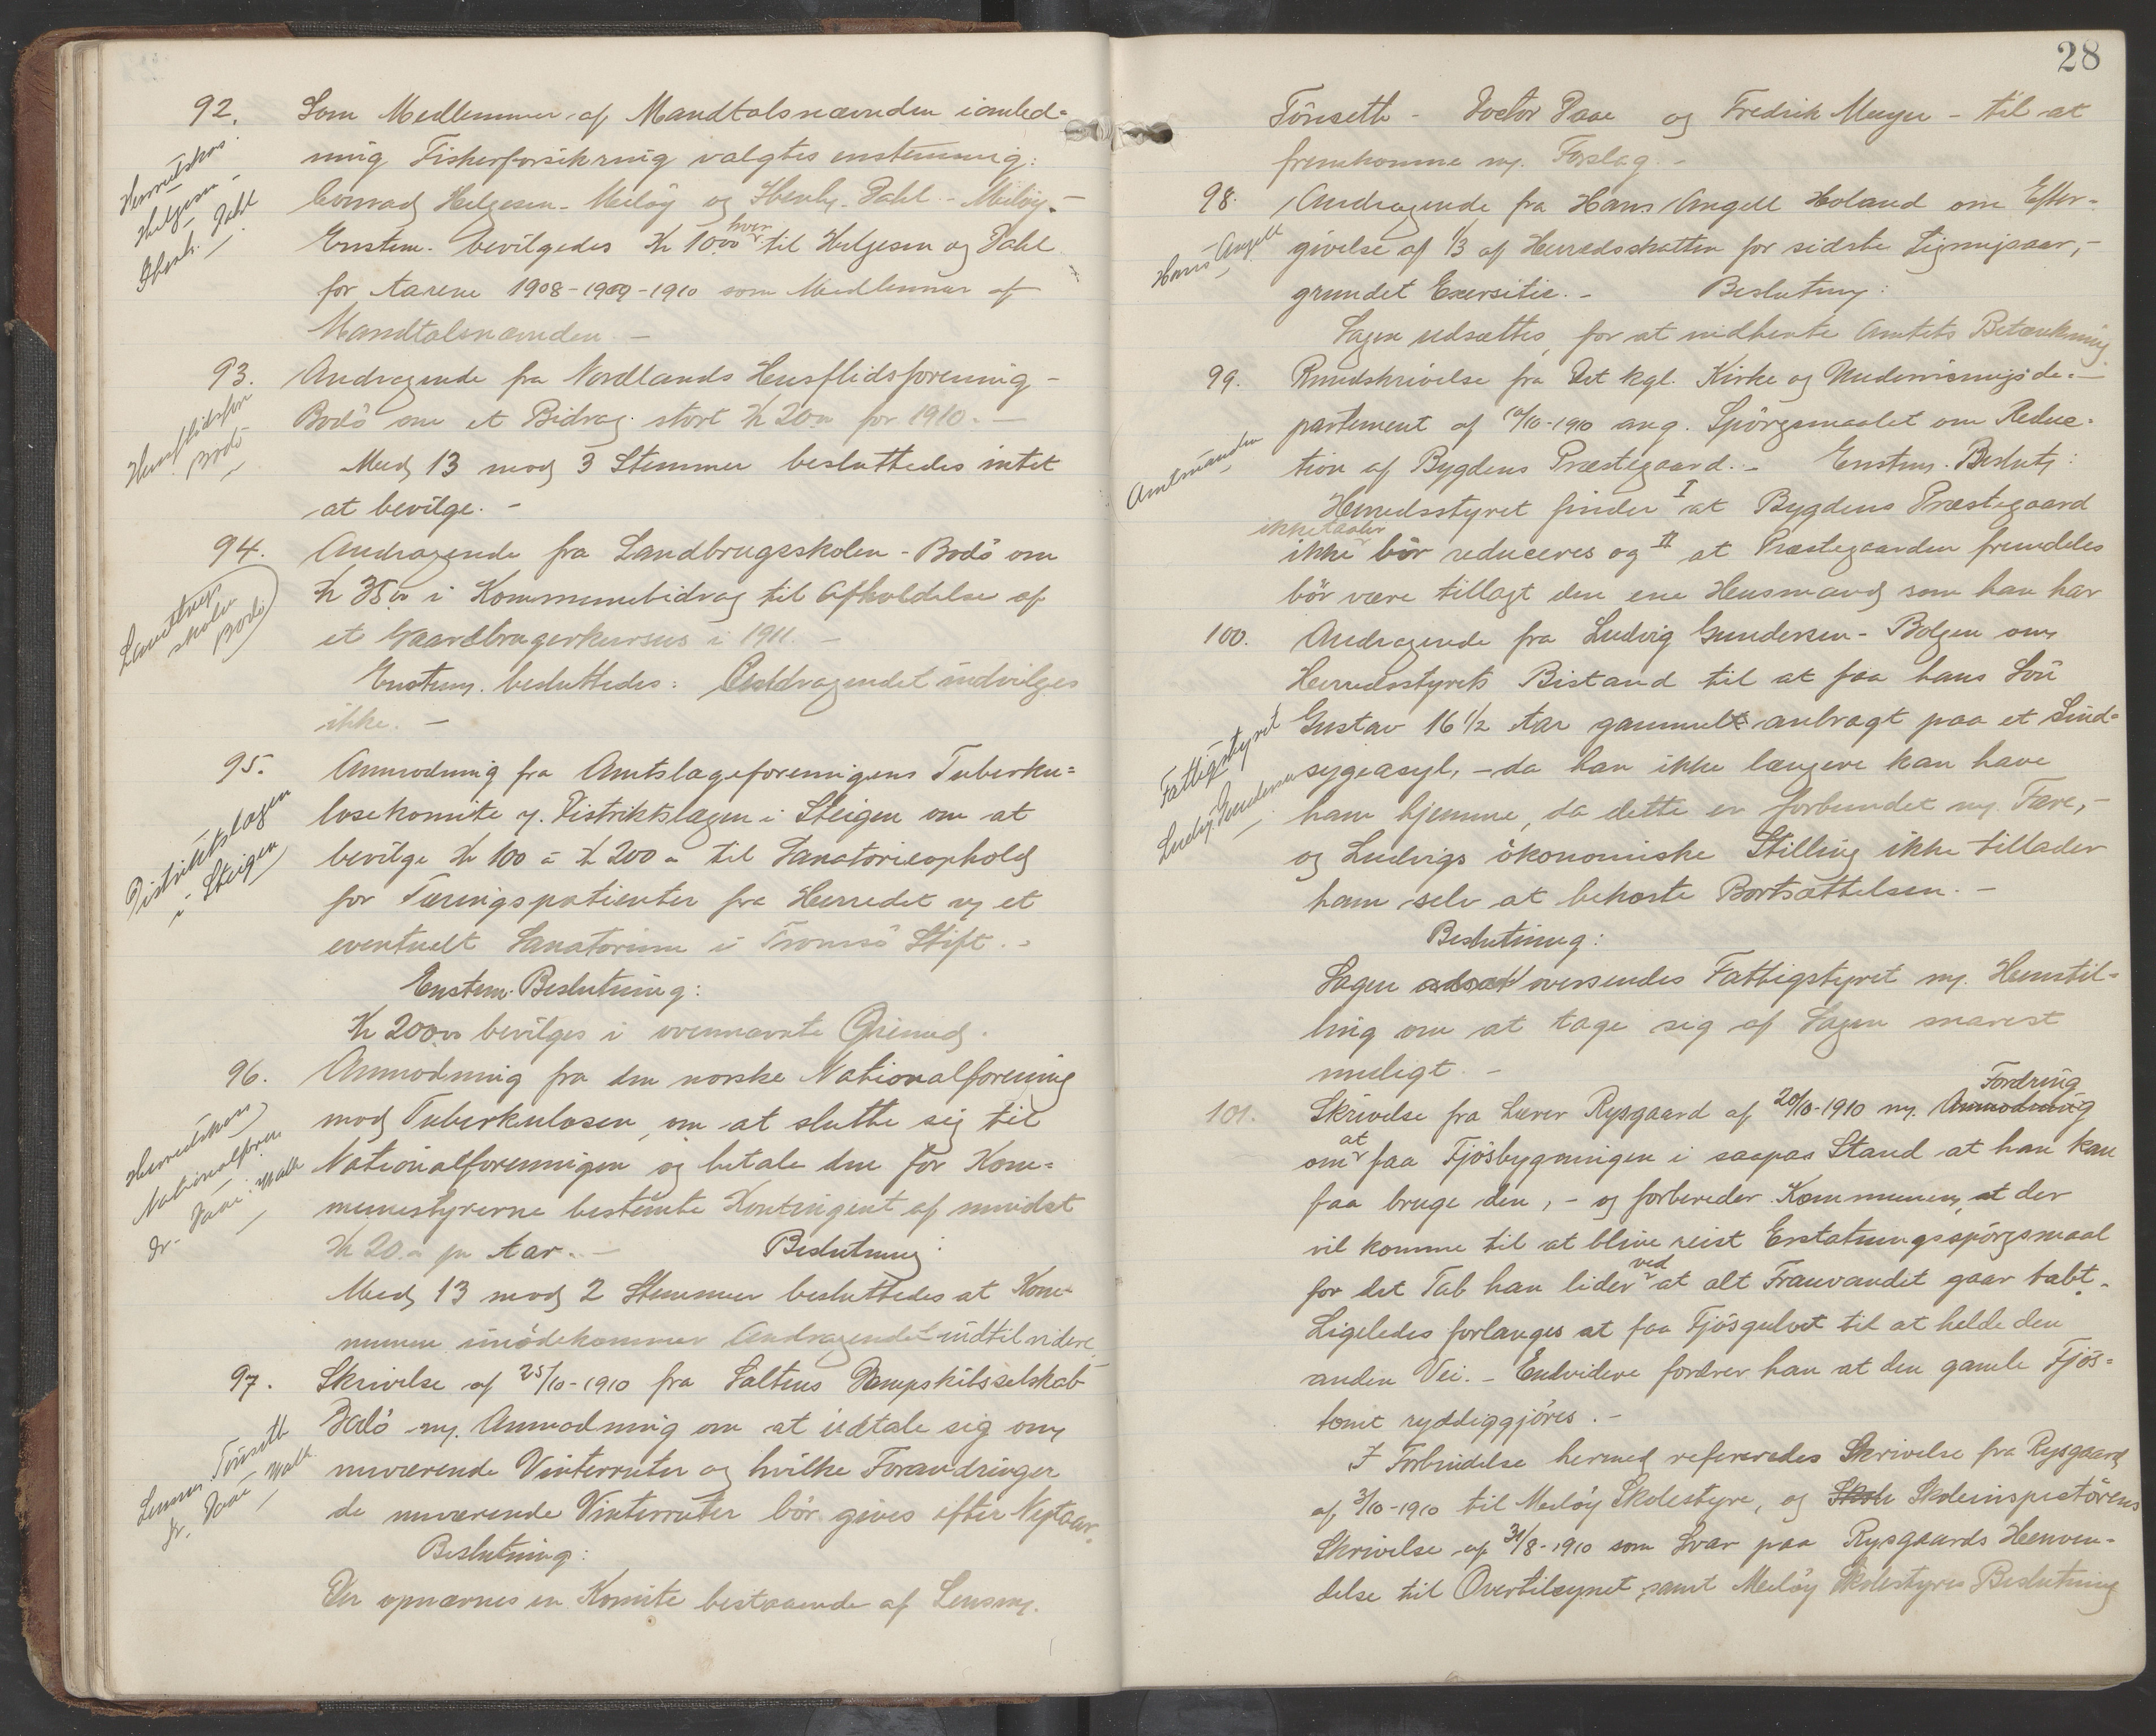 92. Som Medlemmer af Mandtalsnævnden i anled-
ning Fiskerforsikring valgtes enstemmig:
Conrad Helgesen - Meløy og Ebenh. Dahl - Meløy. -
Enstem. bevilgedes Kr 10.00 hver til Helgesen og Dahl
for Aarene 1908-1909-1910 som Medlemmer af
Mandtalsnævnden. -
Helgesen -
Ebenh. Dahl
93. Andragende fra Nordlands Husflidsforening -
Bodö om et Bidrag stort Kr 20.00 for 1910. -
Med 13 mod 3 Stemmer besluttedes intet
at bevilge. -
Husflidsfor
Bodö
94. Andragende fra Landbrugsskolen - Bodö om
Kr 35.00 i Kommunebidrag til Afholdelse af
et Gaardbrugerkursus i 1911. -
Enstem. besluttedes: Andragendet indvilges
ikke. -
skolen
Bodö
95. Anmodning fra Amtslægeforeningens Tuberku=
losekomite v. Distriktslægen i Steigen om at
bevilge Kr 100 à Kr 200 - til Sanatorieophold
for Tæringspatienter fra Herredet ved et
eventuelt Sanatorium i Tromsö Stift. -
Enstem. Beslutning:
Kr 200.00 bevilges i ovennævnte Øiemed.
Distriktslægen
i Steigen
96. Anmodning fra den norske Nationalforening
mod Tuberkulosen, om at slutte sig til
Nationalforeningen og betale den for Kom=
munestyrerne bestemte Kontingent af mindst
Kr 20.- pr Aar. - Beslutning:
Med 13 mod 2 Stemmer besluttedes at Kom-
munen imödekommer Andragendet indtil videre.
Herredskas
Nationalforen
dr. Paae
97. Skrivelse af 25/10-1910 fra Saltens Dampskibsselskab
Bodö m. Anmodning om at udtale sig om
nuværende Vinterruter og hvilke Forandringer
de nuværende Vinterruter bör gives efter Nytaar.
Beslutning:
Der opnævnes en Komite bestaaende af Lensm.
Lensm. Tönseth
dr. Paae
28
Tönseth - Doctor Paae og Fredrik Meyer - til at
fremkomme m. Forslag. -
98. Andragende fra Hans Angell Holand om Efter-
givelse af 1/3 af Herredsskatten for sidste Ligningsaar, -
grundet Exersitie. - Beslutning:
Sagen udsættes for at indhente Amtets Betænkning.
Hans Angell
99. Rundskrivelse fra Det kgl. Kirke og Undervisningsde-
partement af 10/10-1910 ang. Spörgsmaalet om Reduc-
tion af Bygdens Præstegaard. - Enstem. Beslutn:
Herredsstyret finder I at Bygdens Præstegaard
ikke taaler
ikke bör reduceres og II at Præstegaarden fremdeles
bör være tillagt den ene Husmand som han har
Amtmanden
100. Andragende fra Ludvig Gundersen - Bolgen om
Herredsstyrets Bistand til at faa hans Sön
Gustav 16 1/2 Aar gammelt anbragt paa et Sind-
sygeasyl, - da han ikke længere kan have
ham hjemme, da dette er forbundet m. Fare, -
og Ludvigs ökonomiske Stilling ikke tillader
ham selv at bekoste Bortsættelsen. -
Beslutning:
Sagen oversendes Fattigstyret m. Henstil-
ling om at tage sig af Sagen snarest
muligt. -
Fattigstyret
Ludv. Gundersen
101. Skrivelse fra Lærer Rysgaard af 20/10-1910 m. Anmodning Fordring
om at faa Fjösbygningen i saapas Stand at han kan
faa bruge den, - og forbereder Kommunen, at der
vil komme til at blive reist Erstatningsspörgsmaal
for det Tab han lider ved at alt Franvandet gaar tabt. -
Ligeledes forlanges at faa Fjösgulvet til at helde den
anden Vei. - Endvidere fordrer han at den gamle Fjös-
tomt ryddiggjöres. -
I Forbindelse hermed refereredes Skrivelse fra Rysgaard
af 3/10-1910 til Meløy Skolestyre, og Skole Skoleinspectörens
Skrivelse af 31/8-1910 som Svar paa Rysgaards Henven-
delse til Overtilsynet, samt Meløy Skolestyres Beslutning